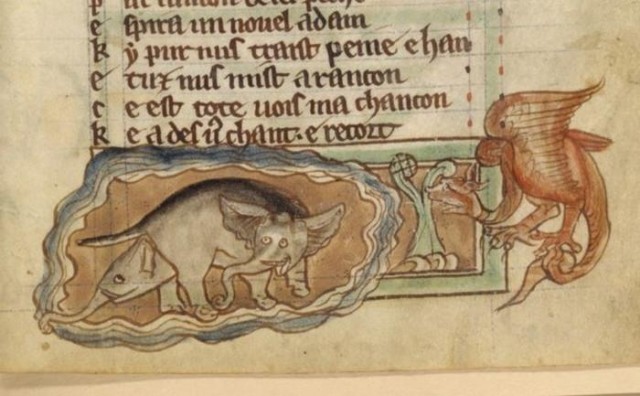 e spira un nouel adam
k y pur nus traist peine e han
e tuz nus mist a rancon
c e est tote uois ma chancon
k e a des
chant. e recort